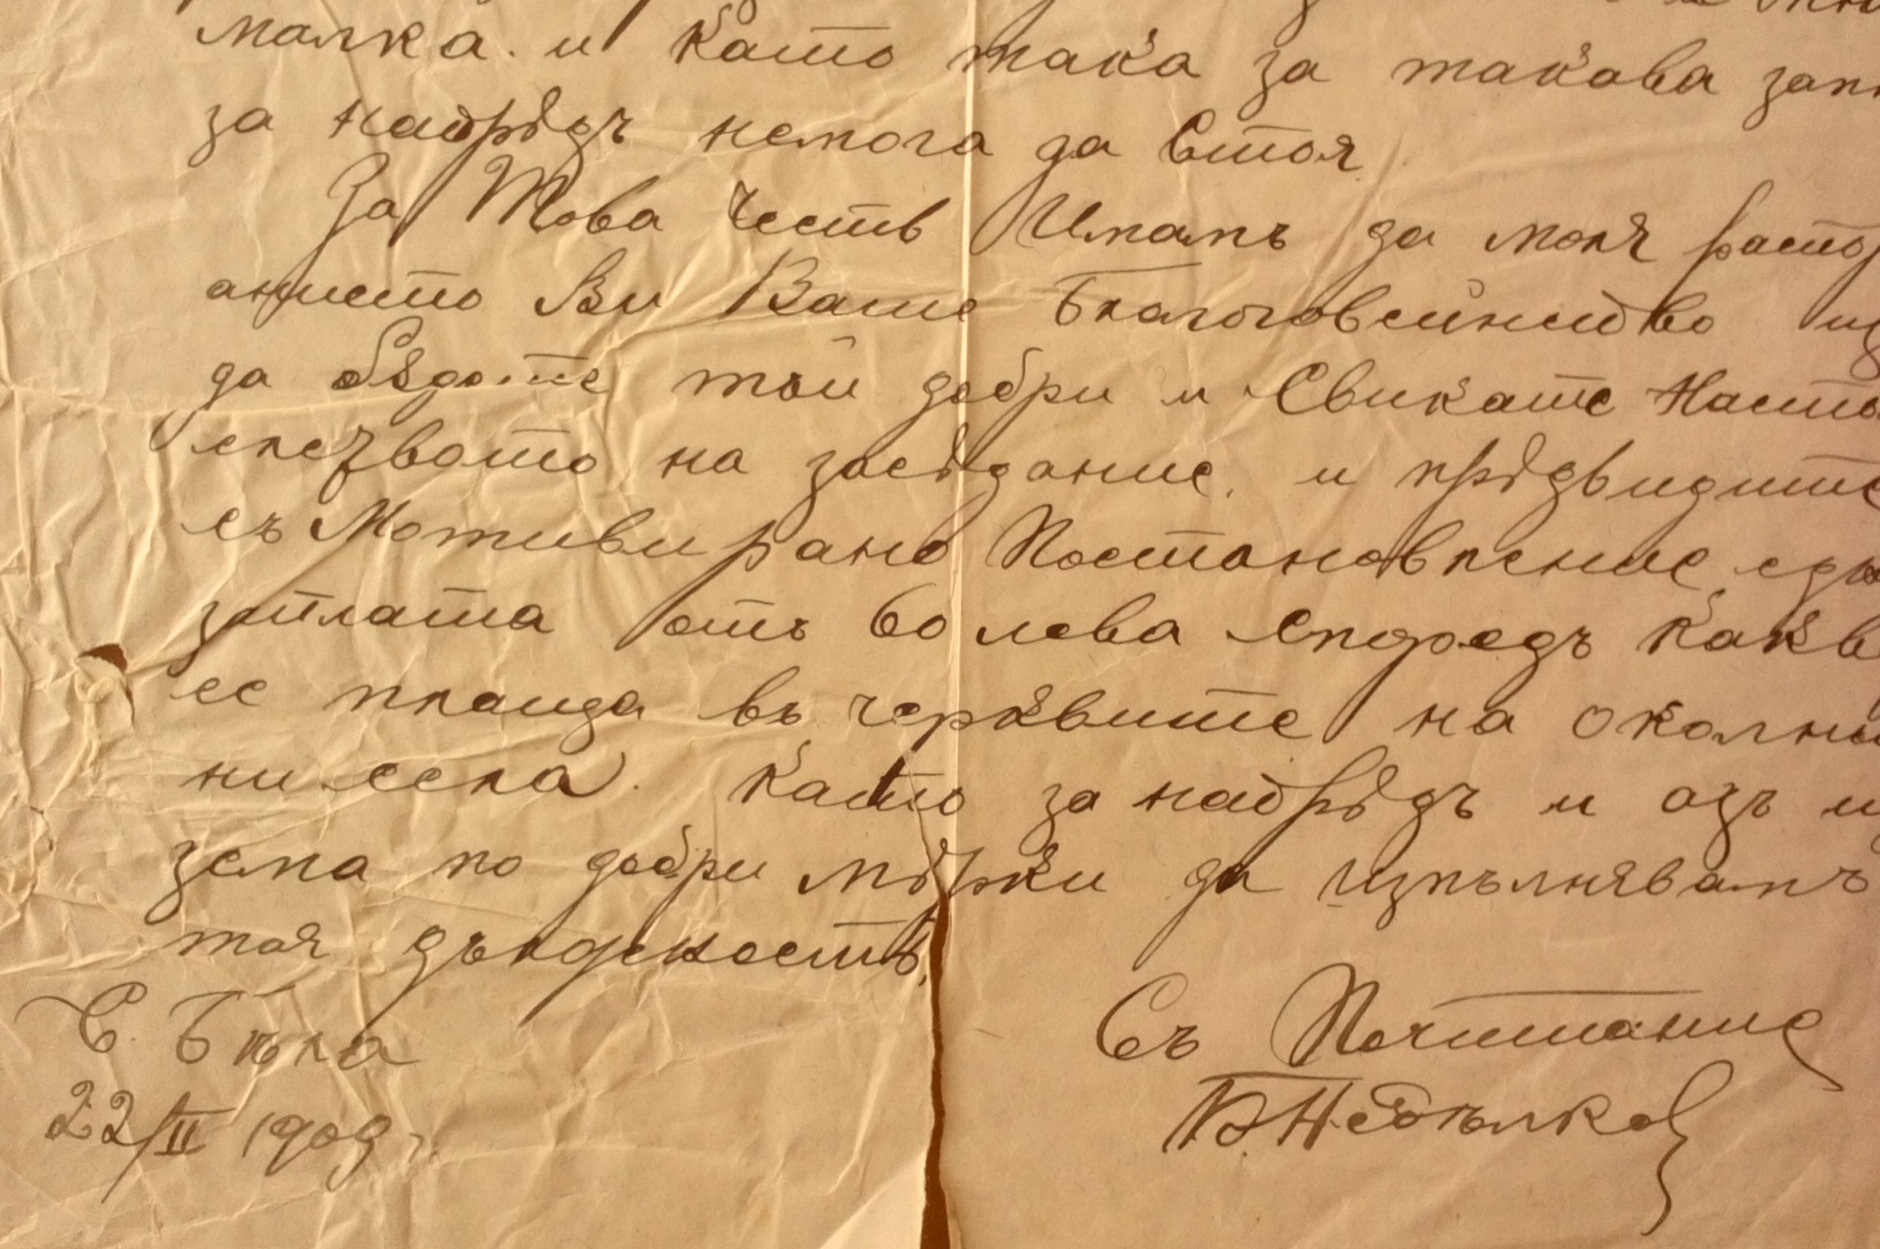 малка. и като така за такава запл
за напрѣдъ немога да стоя
За Това Честь Имамъ да моля распор
анието Ви Ваше Благоговейнство
да бѫдете тъй добри и Свикате Насто
телството на заседание, и прѣдвидите
съ Мотивирано Постановление една
заплата отъ 60 лева според какв
се плаща въ черквите на околни
ни села. като за напрѣдъ и азъ
зема по добри мѣрки да изпълнявамъ
тая длъжность.
С. Бѣла
22/II 1909 г.
Съ Почитание